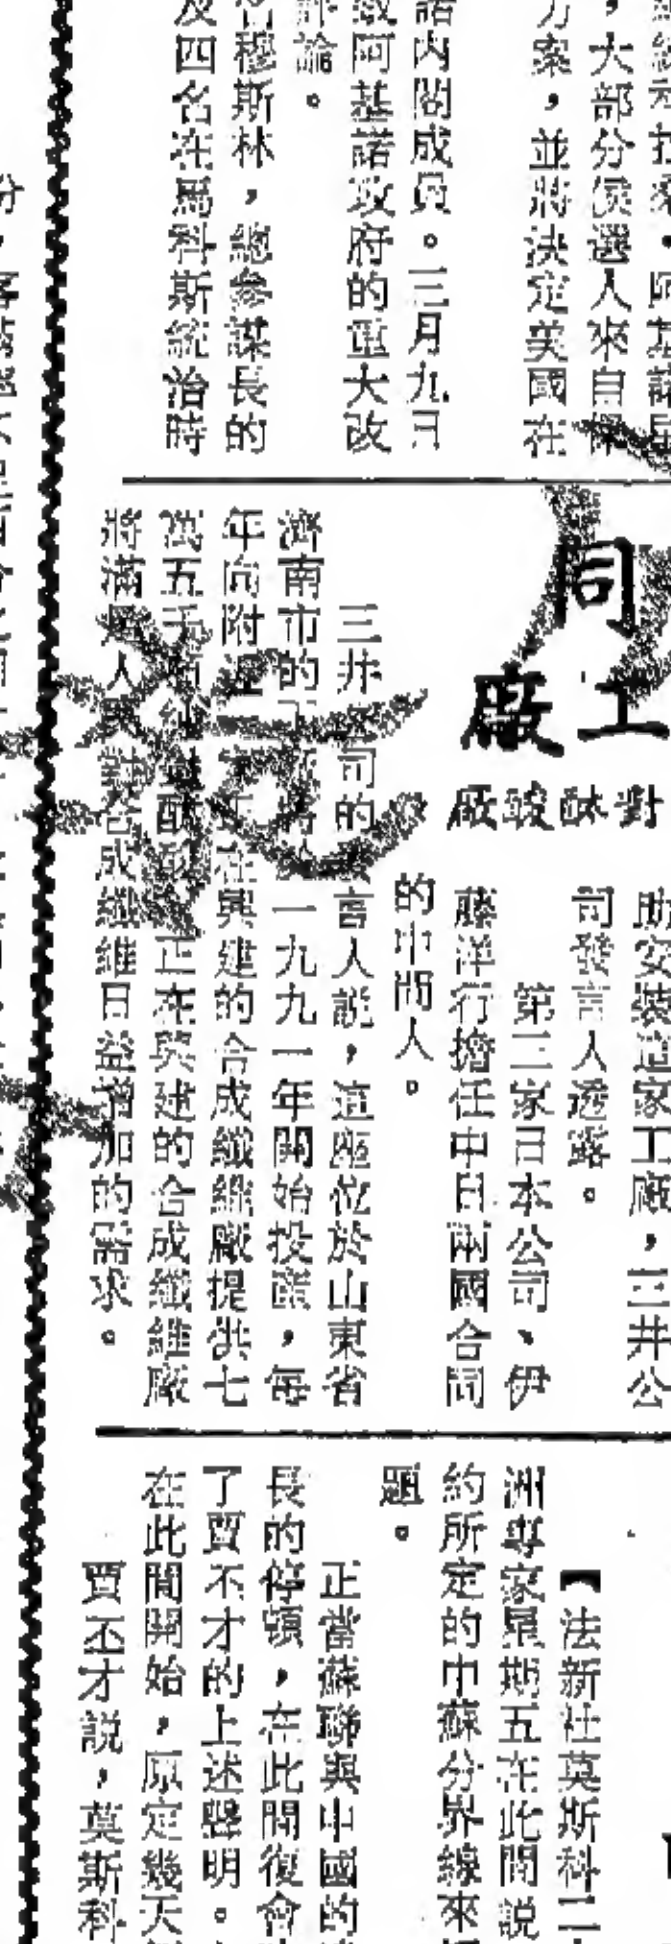 ，大部分候選人來自
方案，並將決定美國在
諾內閣成員。三月九日
阿基諾政府的重大改
評論。
名穆斯林，總參謀長的
及四名在馬科斯統治時
同
工廠
對酞酸廠
助安裝這家工廠，三井公
司發言人透露。
第三家日本公司、伊
藤洋行擔任中日兩國合同
的中間人。
三井公司的發言人說，這座位於山東省
濟南市的工廠將於一九九一年開始投產，每
年向附近一家正在興建的合成纖維廠提供七
萬五千噸純對酞酸。正在興建的合成纖維廠
將滿足人民對合成纖維日益增加的需求。
【法新社莫斯科二
洲專家星期五在此間說
約所定的中蘇分界線來
題。
正當蘇聯與中國的
長的停頓，在此間復會
了賈丕才的上述聲明。
在此間開始，原定幾天
賈丕才說，莫斯科